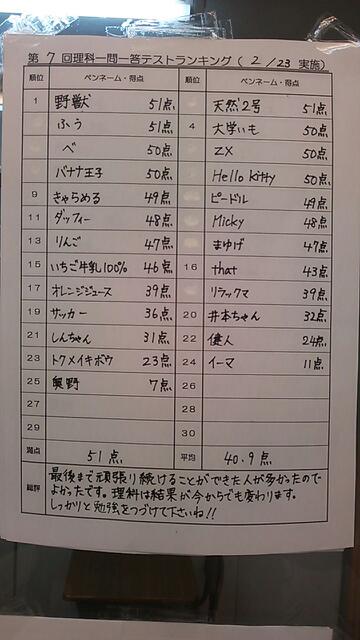 第 7 回理科一問一答テストランキング( 2 / 23 実施)
順位 ペンネーム・得点 順位 ペンネーム・得点
1 野獣 51点 天然2号 51点
ふう 51点 4 大学いも 50点
べ 50点 ZX 50点
バナナ王子 50点 Hello kitty 50点
9 きゃらめる 49点 ピードル 49点
11 ダッフィー 48点 Micky 48点
13 りんご 47点 まゆげ 47点
15 いちご牛乳100% 46点 16 that 43点
17 オレンジジュース 39点 リラックマ 39点
19 サッカー 36点 20 井本ちゃん 32点
21 しんちゃん 31点 22 健人 24点
23 トクメイキボウ 23点 24 イーマ 11点
25 奥野 7点 26
27 28
29 30
満点 51点 平均 40.9点
総評 最後まで頑張り続けることができた人が多かったので
よかったです。理科は結果が今からでも変わります。
しっかりと勉強をつづけて下さいね!!